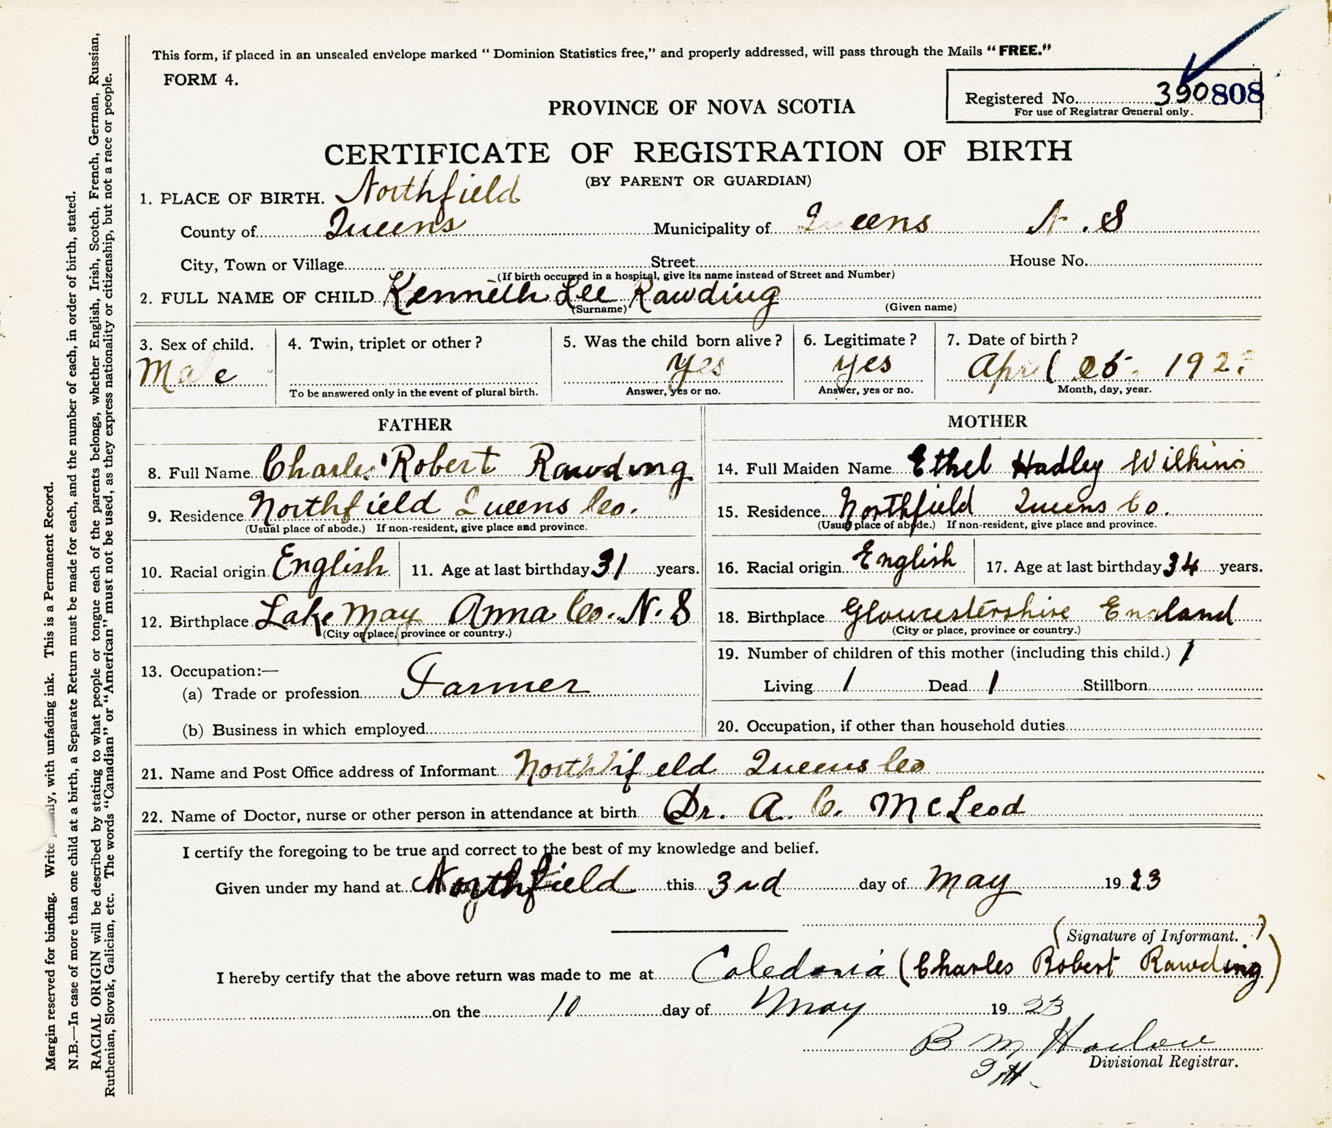 This form, if placed in an unsealed envelope marked " Dominion Statistics free," and properly addressed, will pass through the Mails "FREE."
FORM 4.
Registered No. 390808
For use of Registrar General only.
PROVINCE OF NOVA SCOTIA
CERTIFICATE OF REGISTRATION OF BIRTH
(BY PARENT OR GUARDIAN)
1. PLACE OF BIRTH. Northfield
County of Queens Municipality of Queens N. S
City, Town or Village Street House No.
(If birth occurred in a hospital, give its name instead of Street and Number)
2. FULL NAME OF CHILD Kenneth Lee Rawding
(Surname) (Given name)
3. Sex of child. 4. Twin, triplet or other? 5. Was the child born alive? 6. Legitimate? 7. Date of birth?
Male yes yes April 25, 192
To be answered only in the event of plural birth. Answer, yes or no. Answer, yes or no. Month, day, year.
FATHER
8. Full Name Charles Robert Rawding
9. Residence Northfield Queens Co.
(Usual place of abode.) If non-resident, give place and province.
10. Racial origin English 11. Age at last birthday 31 years.
12. Birthplace Lake May Anna Co. N. S
(City or place, province or country.)
13. Occupation:—
(a) Trade or profession Farmer
(b) Business in which employed
MOTHER
14. Full Maiden Name Ethel Hadley Wilkins
15. Residence Northfield Queens Co.
(Usual place of abode.) If non-resident, give place and province.
16. Racial origin English 17. Age at last birthday 34 years.
18. Birthplace Gloucestershire England
(City or place, province or country.)
19. Number of children of this mother (including this child.) 1
Living 1 Dead 1 Stillborn
20. Occupation, if other than household duties
21. Name and Post Office address of Informant Northfield Queens Co
22. Name of Doctor, nurse or other person in attendance at birth Dr. A. C. McLeod
I certify the foregoing to be true and correct to the best of my knowledge and belief.
Given under my hand at Northfield this 3rd day of May 1923
(Signature of Informant.)
I hereby certify that the above return was made to me at Caledonia (Charles Robert Rawding)
on the 10 day of May 1923
B M Harlow
Divisional Registrar.
Margin reserved for binding. Write plainly, with unfading ink. This is a Permanent Record.
N.B.—In case of more than one child at a birth, a Separate Return must be made for each, and the number of each, in order of birth, stated.
RACIAL ORIGIN will be described by stating to what people or tongue each of the parents belongs, whether English, Irish, Scotch, French, German, Russian,
Ruthenian, Slovak, Galician, etc. The words "Canadian" or "American" must not be used, as they express nationality or citizenship, but not a race or people.